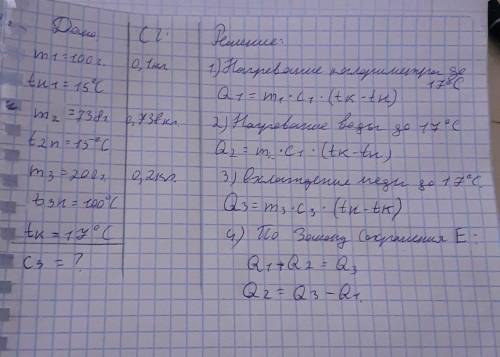 Дано
m1=100г.
tн1=15°C
m2=738г
t2н=15°C
m3=200г.
t3н=100°C
tк=17°C
C3=?
СИ:
0,1кг
0,738кг.
0,2кг.
Решение:
1) Нагревание калориметра до
17°C
Q1=m1·c1·(tк-tн)
2) Нагревание воды до 17°C
Q2=m·c1·(tк-tн)
3) охлаждение меди до 17°C.
Q3=m3·c3·(tн-tк)
4) По Закону Сохранения E:
Q1+Q2=Q3
Q2=Q3-Q1.